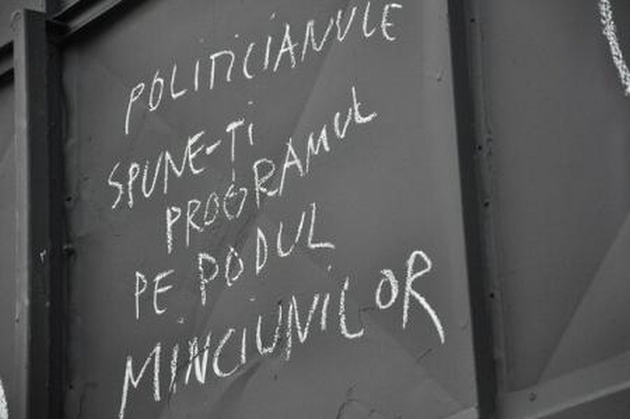 POLITICIANULE
SPUNE-ȚI
PROGRAMUL
PE PODUL
MINCIUNILOR